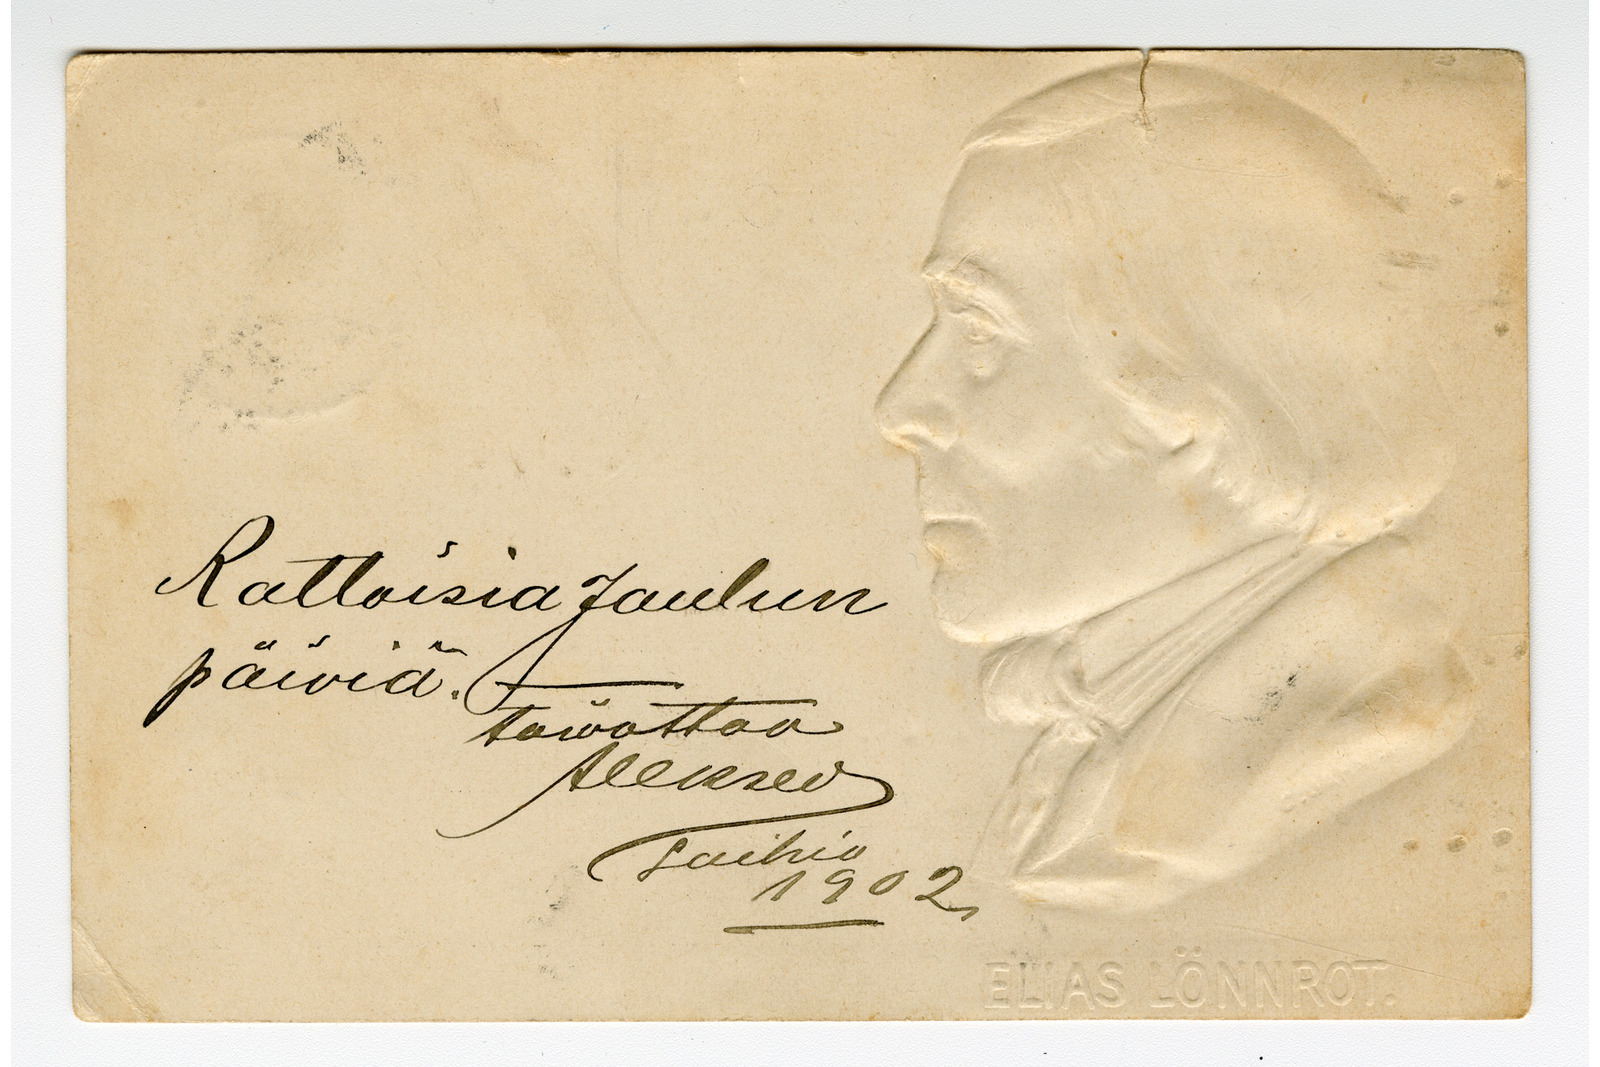 Rattoisia Jaulun
päiviä.
toiwottaa
Aleksed
1902.
ELIAS LÖNNROT.